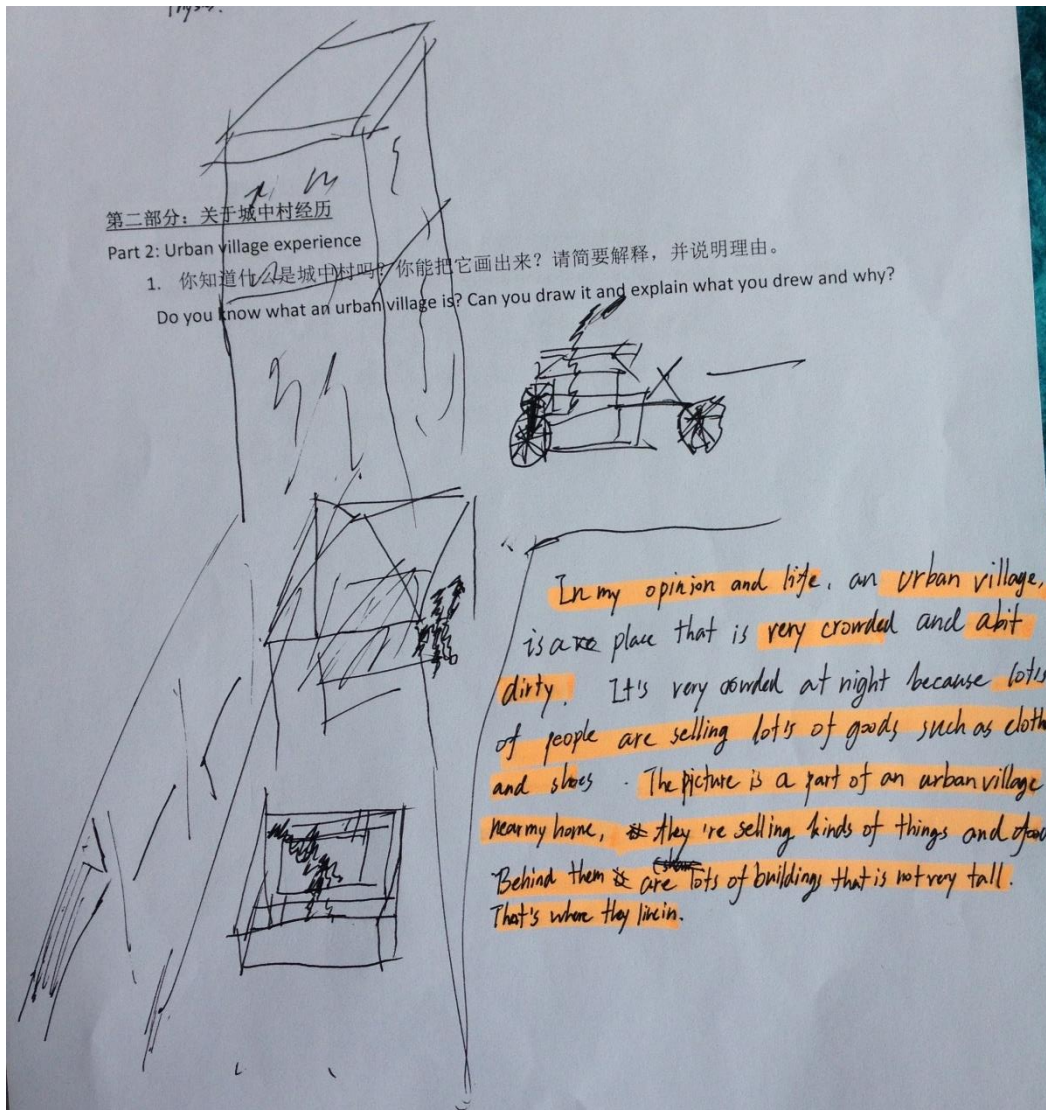 第二部分：关于城中村经历
Part 2: Urban village experience
1. 你知道什么是城中村吗？你能把它画出来？请简要解释，并说明理由。
Do you know what an urban village is? Can you draw it and explain what you drew and why?
In my opinion and life, an urban village,
is a place that is very crowded and abit
dirty. It's very crowded at night because lots
of people are selling lot's of goods such as cloth
and shoes. The picture is a part of an urban village
near my home, they're selling kinds of things and
Behind them are lots of buildings that is not very tall.
That's where they live in.